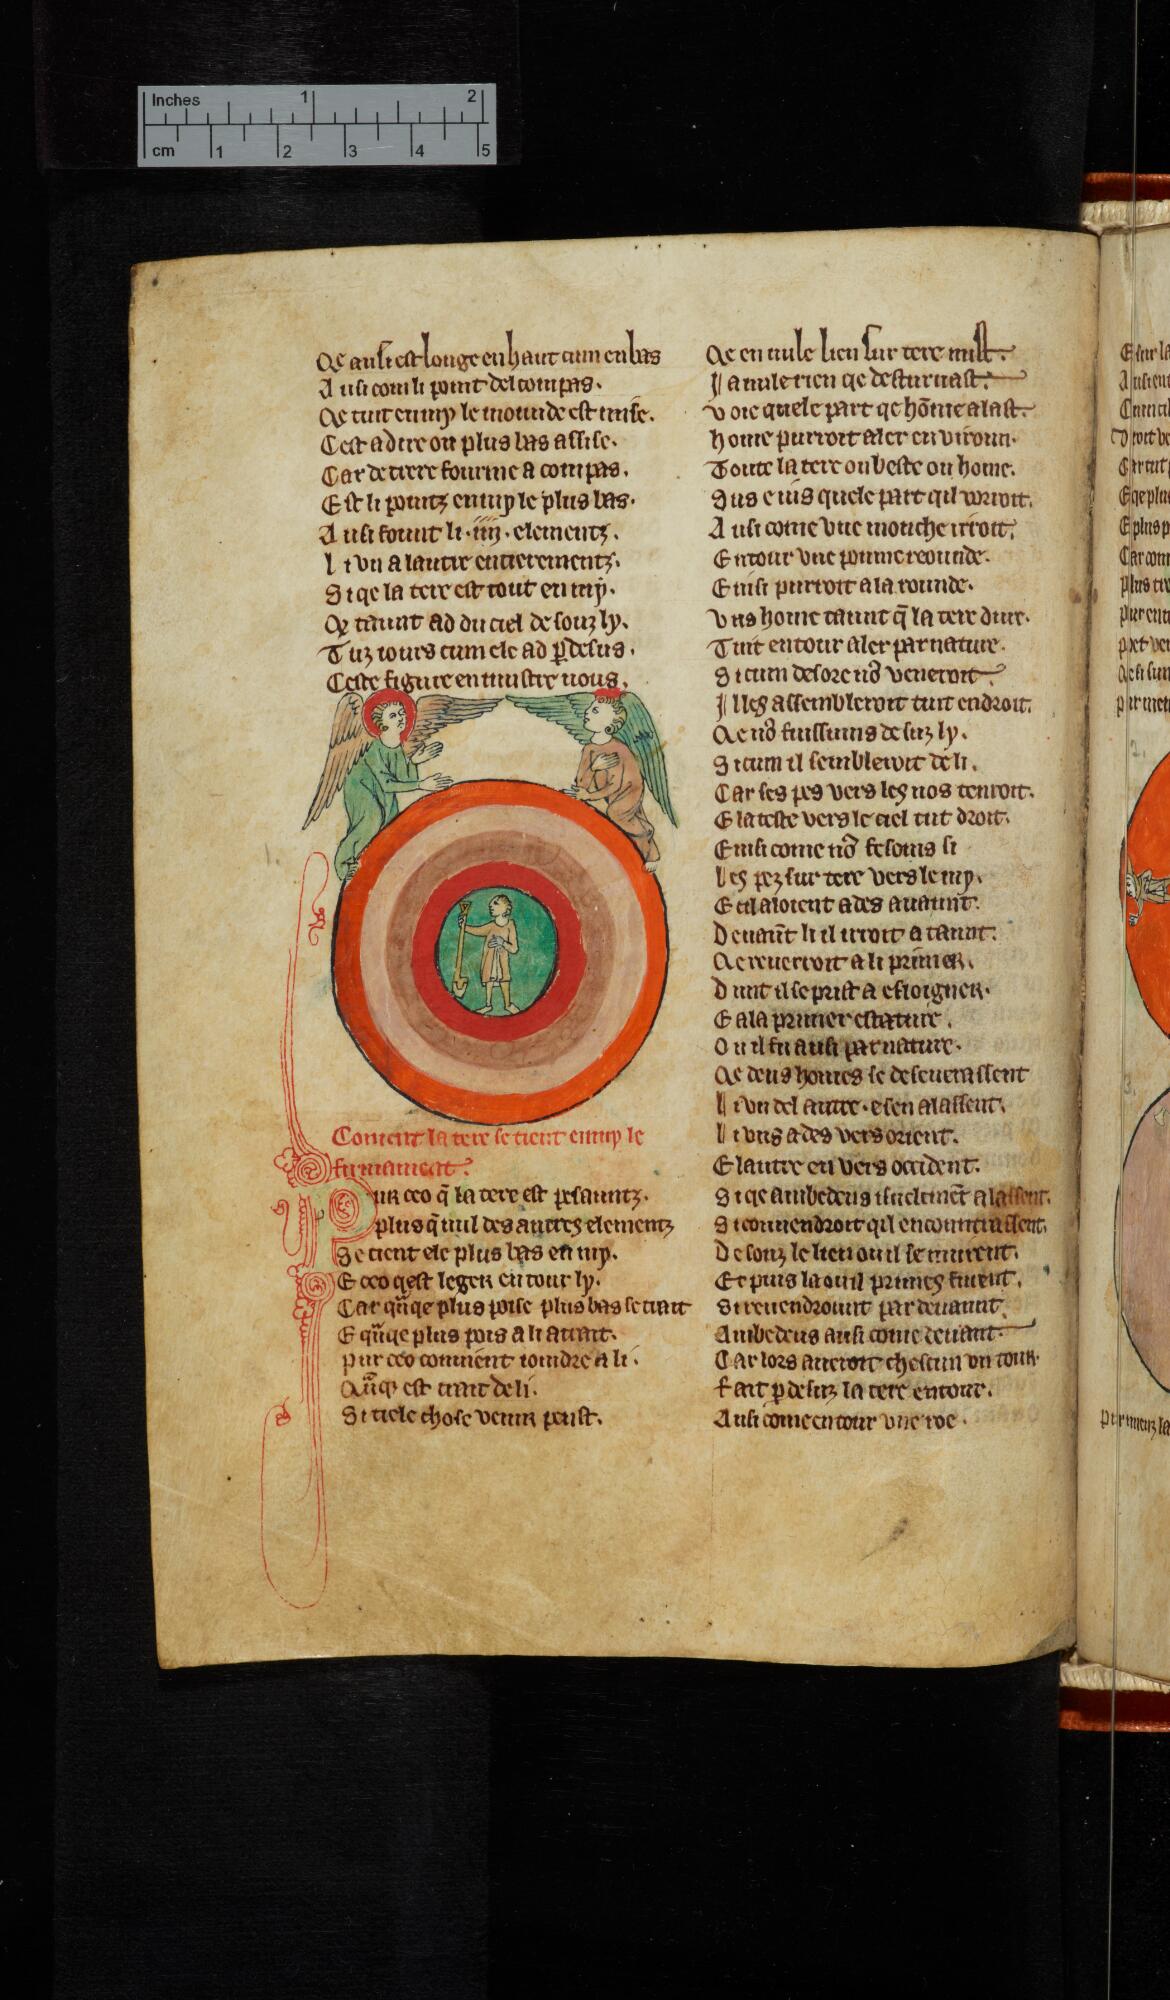 Inches 1 2
cm 1 2 3 4 5
Qe ausi est longe en haut cum en bas
Ausi com li point del compas.
Qe tuit en my le mounde est mise.
Cest a dire ou plus bas assise.
Car de trere fourme a compas.
Est li pointz en my le plus bas.
Ausi sount li .iiij. elementz.
Li vn a lautre entierementz.
Si qe la tere est tout en my.
taunt ad du ciel de souz ly.
Tuz iours cum ele ad p̲desus.
Ceste figure en mustre nous.
Coment la tere se tient en my le
firmament.
Pur ceo q̃ la tere est pesauntz.
plus q̃ nul des autres elementz
Se tient ele plus bas en my.
E ceo qest leger en tour ly.
Car qñqe plus poise plus bas se trait
E qñqe plus pois a li atrait.
Pur ceo conuient ioindre a li.
est trait de li.
Si tiele chose venir peust.
Qe en nule lieu sur tere
Ja nule rien qe desturnast.
Voie quele part qe hōme alast.
Home purroit aler enviroun.
Toute la tere ou beste ou home.
Sus e ius quele part qil vorroit.
Ausi come vne mouche irroit.
Entour vne poume reounde.
Einsi purroit a la rounde.
Vns home taunt q̃ la tere dure.
Tuit entour aler par nature.
Si cum desore nō veneroit.
Il les assembleroit tuit endroit.
Qe nō fuissums de suz ly.
Si cum il sembleroit de li.
Car ses pes vers les nos tenroit.
E la teste vers le ciel tut droit.
Einsi come nō fesoms si
Les pez sur tere vers le my.
E cil aloient ades auaunt.
Deuaunt li il irroit a taunt.
Qe reuerroit a li primer.
Dunt il se prist a esloigner.
E a la primer estature.
Ou il fu ausi par nature.
Qe deus homes se deseuerassent
Li vn del autre . e sen alassent.
Li vns ades vers orient.
E lautre en vers occident.
Si qe ambedeus iuelemẽt alassent.
Si conuendroit qil encountrassent.
De souz le lieu ou il se murent.
Et puis la ou il primes furent.
Si reuendrount par deuaunt.
Ambedeus ausi come deuant.
Car lors aueroit chescun vn tour
Fait p̲desuz la tere entour.
Ausi come en tour vne roe.